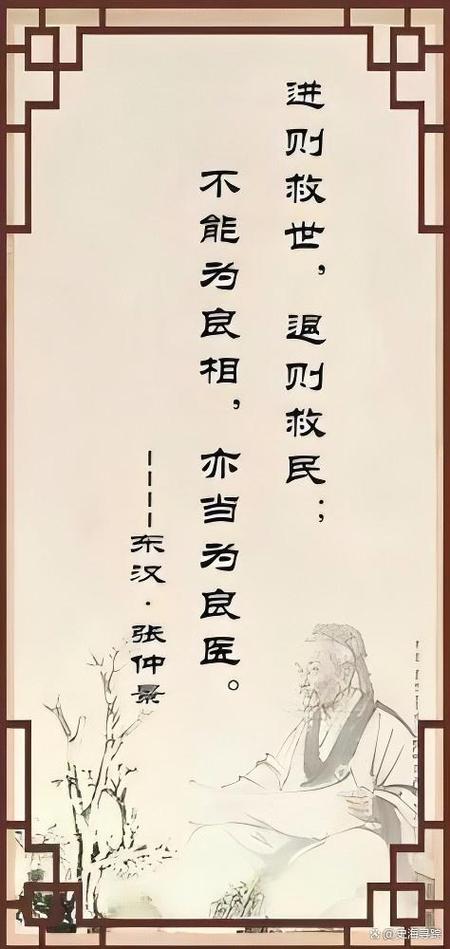 进则救世，退则救民；
不能为良相，亦当为良医。
----东汉·张仲景